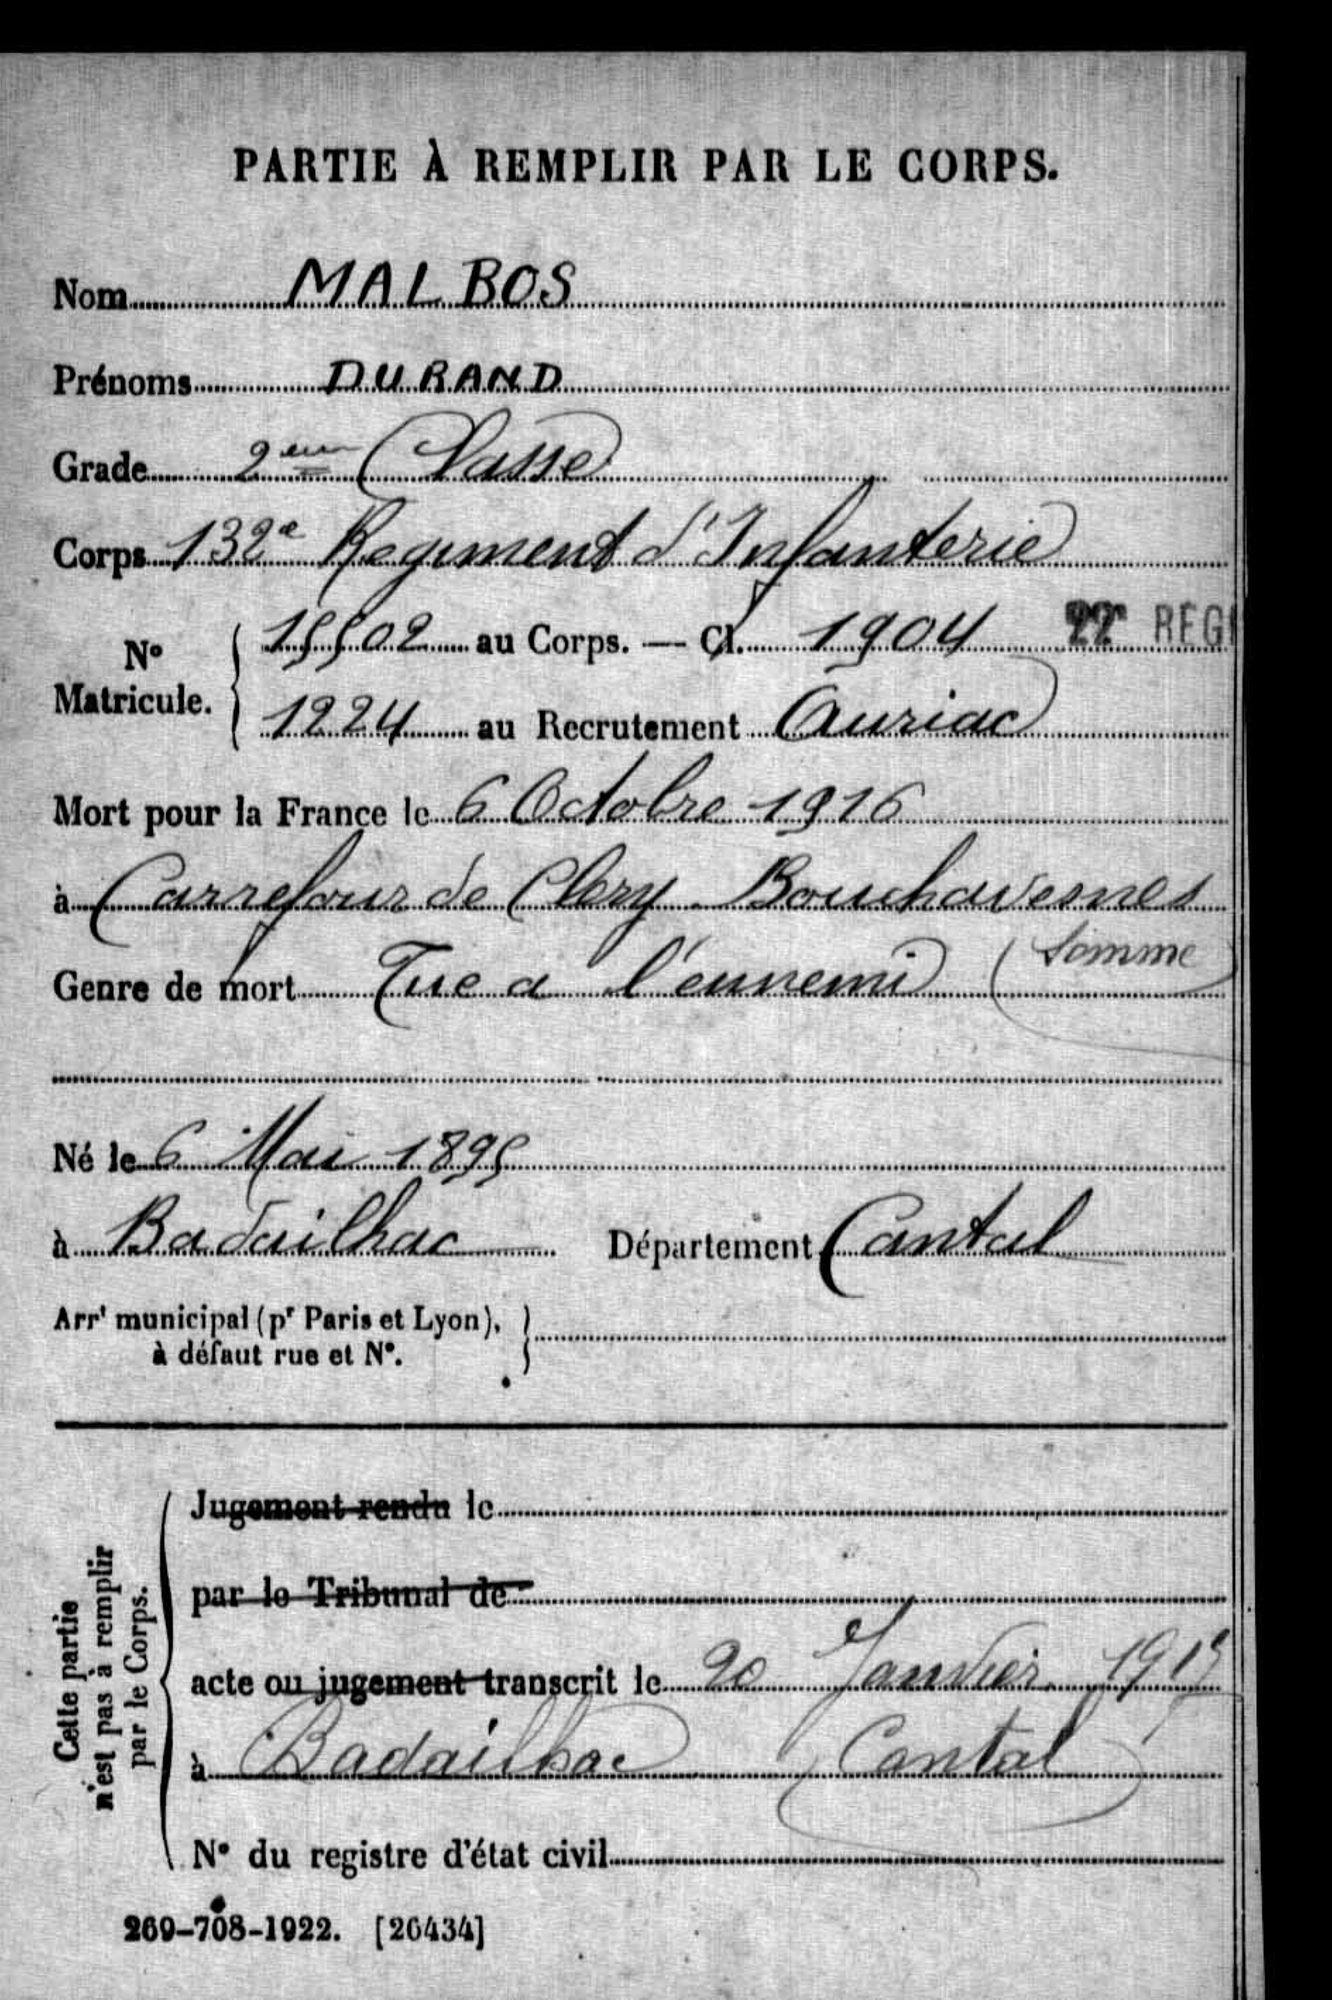 PARTIE À REMPLIR PAR LE CORPS.
Nom MALBOS
Prénoms DURAND
Grade 2eme Classe
Corps 132e Regiment d'Infanterie
N° Matricule. 15502 au Corps. — Cl. 1904 22e REGI
1224 au Recrutement Auriac
Mort pour la France le 6 Octobre 1916
à Carrefour de Clery Bouchavesnes
(Somme
Genre de mort Tue a l'ennemi
Né le 6 Mai 1895
à Badailhac Département Cantal
Arrt municipal (pr Paris et Lyon),
à défaut rue et N°.
Cette partie
n'est pas à remplir
par le Corps.
Jugement rendu le
par le Tribunal de
acte ou jugement transcrit le 20 Janvier
à Badailhac (Cantal)
N° du registre d'état civil
269-708-1922. [26434]